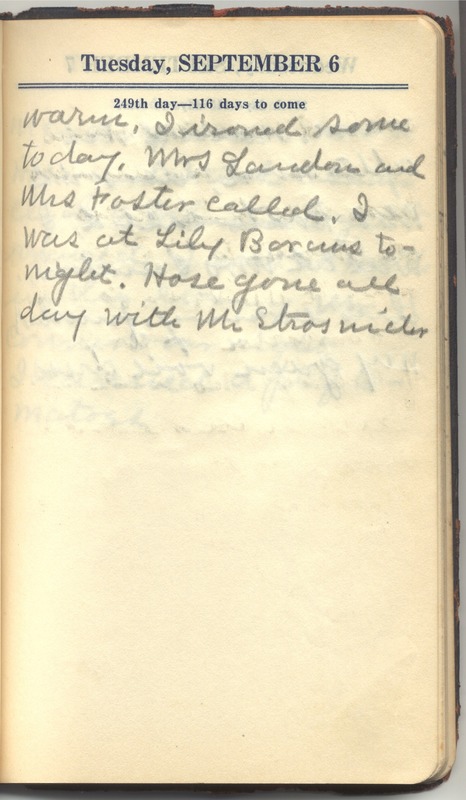 Tuesday, SEPTEMBER 6
249th day—116 days to come
warm. I ironed some
today. Mrs Landon and
Mrs Foster called. I
was at Lily Borams to-
night. Hose gone all
day with Mr Strosnider